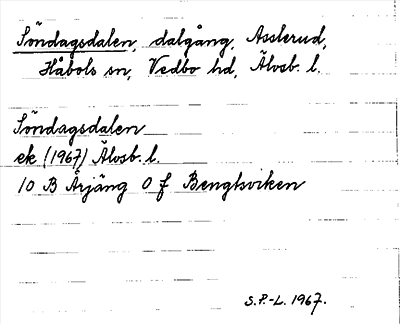 Söndagsdalen, dalgång, Asslerud,
Håbols sn, Vedbo hd, Älvsb. l.
Söndagsdalen
ek (1967) Älvsb. l.
10 B Årjäng 0 f Bengtsviken
S.P.-L. 1967.